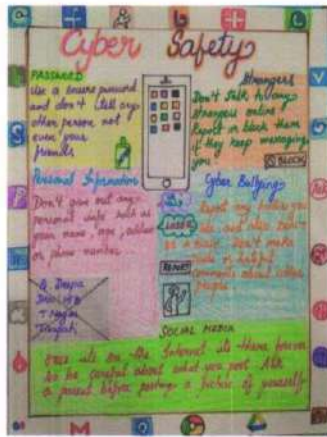 Cyber Safety
PASSWORD
Use a secure password
and don't tell any
other person not
even your
friends
Strangers
Don't talk to any
strangers online
Report or block them
if they keep messaging
you
BLOCK
Personal Information
Don't give out any
personal info such as
your name, age, address
or phone number...
Cyber Bullying
Report any bullies you
see and also
be a
Don't make
rude or hateful
comments about other
People
LOSER
REPORT
SOCIAL MEDIA
Once its on the Internet its there forever
so be careful about what you post. Ask
a parent before posting a picture of yourself